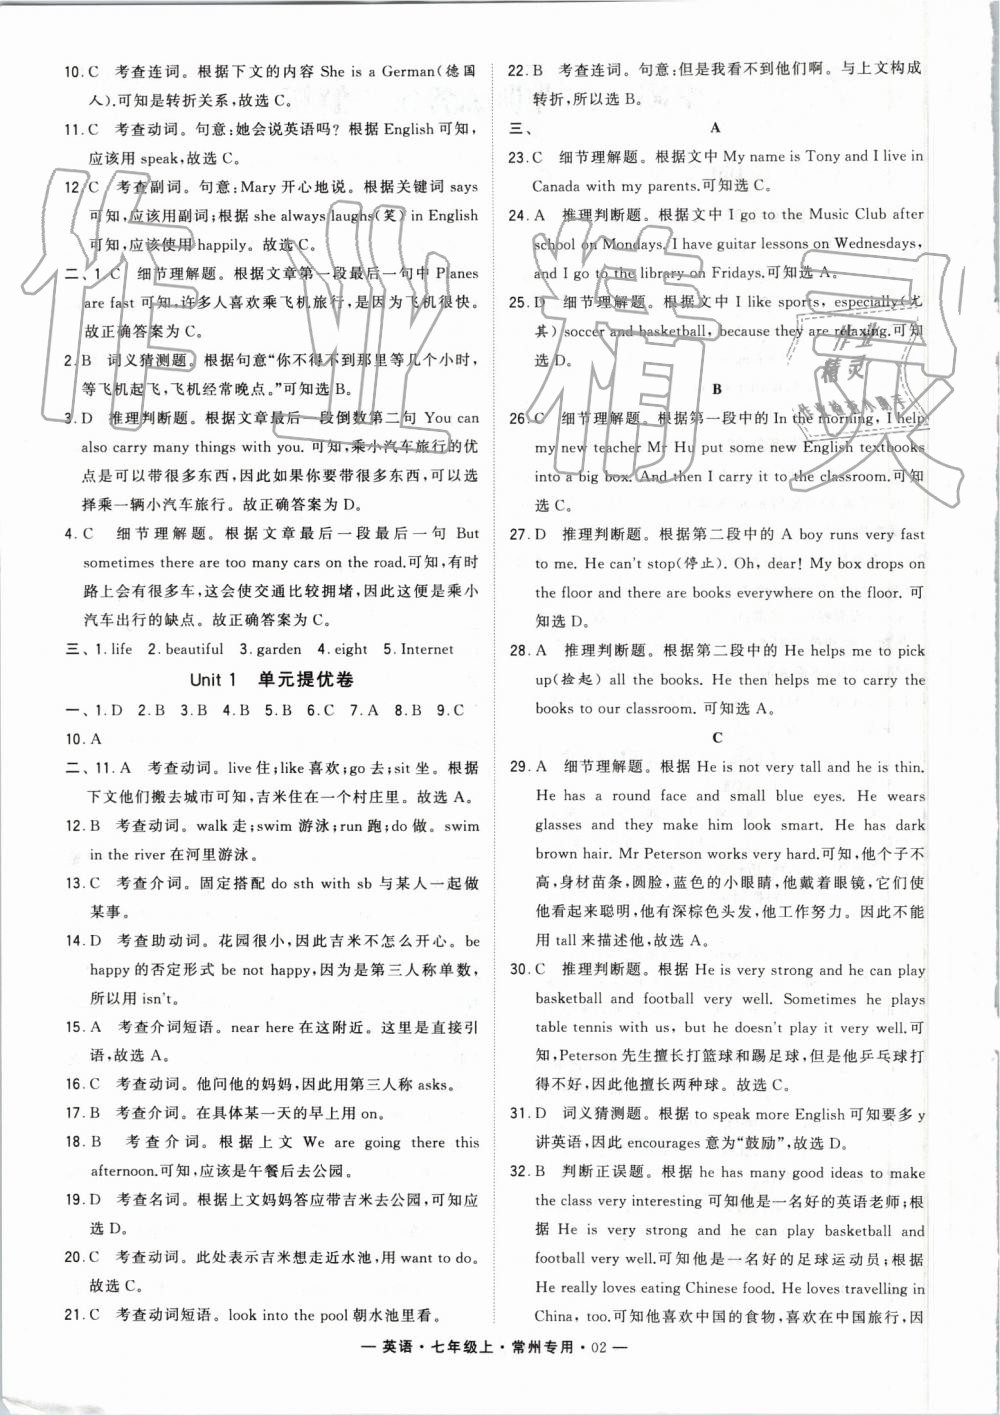 10. C 考查连词。根据下文的内容 She is a German(德国
人).可知是转折关系,故选 C。
11. C 考查动词。句意:她会说英语吗? 根据 English 可知,
应该用 speak,故选 C。
12. C 考查副词。句意:Mary 开心地说。根据关键词 says
可知,应该用副词;根据 she always laughs(笑) in English
可知,应该使用 happily。故选 C。
二、1. C 细节理解题。根据文章第一段最后一句中 Planes
are fast 可知,许多人喜欢乘飞机旅行,是因为飞机很快。
故正确答案为 C。
2. B 词义猜测题。根据句意“你不得不到那里等几个小时,
等飞机起飞,飞机经常晚点。”可知选 B。
3. D 推理判断题。根据文章最后一段倒数第二句 You can
also carry many things with you. 可知,乘小汽车旅行的优
点是可以带很多东西,因此如果你要带很多东西,可以选
择乘一辆小汽车旅行。故正确答案为 D。
4. C 细节理解题。根据文章最后一段最后一句 But
sometimes there are too many cars on the road.可知,有时
路上会有很多车,这会使交通比较拥堵,因此这便是乘小
汽车出行的缺点。故正确答案为 C。
三、1. life 2. beautiful 3. garden 4. eight 5. Internet
Unit 1 单元提优卷
一、1. D 2. B 3. B 4. B 5. B 6. C 7. A 8. B 9. C
10. A
二、11. A 考查动词。live 住;like 喜欢;go 去;sit 坐。根据
下文他们搬去城市可知,吉米住在一个村庄里。故选 A。
12. B 考查动词。walk 走;swim 游泳;run 跑;do 做。swim
in the river 在河里游泳。
13. C 考查介词。固定搭配 do sth with sb 与某人一起做
某事。
14. D 考查助动词。花园很小,因此吉米不怎么开心。be
happy 的否定形式 be not happy,因为是第三人称单数,
所以用 isn't。
15. A 考查介词短语。near here 在这附近。这里是直接引
语,故选 A。
16. C 考查动词。他问他的妈妈,因此用第三人称 asks。
17. B 考查介词。在具体某一天的早上用 on。
18. B 考查介词。根据上文 We are going there this
afternoon.可知,应该是午餐后去公园。
19. D 考查名词。根据上文妈妈答应带吉米去公园,可知应
选 D。
20. C 考查动词。此处表示吉米想走近水池,用 want to do。
故选 C。
21. C 考查动词短语。look into the pool 朝水池里看。
22. B 考查连词。句意:但是我看不到他们啊。与上文构成
转折,所以选 B。
三、 A
23. C 细节理解题。根据文中 My name is Tony and I live in
Canada with my parents.可知选 C。
24. A 推理判断题。根据文中 I go to the Music Club after
school on Mondays. I have guitar lessons on Wednesdays,
and I go to the library on Fridays.可知选 A。
25. D 细节理解题。根据文中 I like sports, especially(尤
其) soccer and basketball, because they are relaxing.可知
选 D。
B
26. C 细节理解题。根据第一段中的 In the morning, I help
my new teacher Mr Hu put some new English textbooks
into a big box. And then I carry it to the classroom.可知
选 C。
27. D 推理判断题。根据第二段中的 A boy runs very fast
to me. He can't stop(停止). Oh, dear! My box drops on
the floor and there are books everywhere on the floor. 可
知选 D。
28. A 推理判断题。根据第二段中的 He helps me to pick
up(捡起) all the books. Then he helps me to carry the
books to our classroom. 可知选 A。
C
29. A 细节理解题。根据 He is not very tall and he is thin.
He has a round face and small blue eyes. He wears
glasses and they make him look smart. He has dark
brown hair. Mr Peterson works very hard.可知,他个子不
高,身材苗条,圆脸,蓝色的小眼睛,他戴着眼镜,它们使
他看起来聪明,他有深棕色头发,他工作努力。因此不能
用 tall 来描述他,故选 A。
30. C 推理判断题。根据 He is very strong and he can play
basketball and football very well. Sometimes he plays
table tennis with us, but he doesn't play it very well.可
知,Peterson 先生擅长打篮球和踢足球,但是他乒乓球打
得不好,因此他擅长两种球。故选 C。
31. D 词义猜测题。根据 to speak more English 可知要多 y
讲英语,因此 encourages 意为“鼓励”,故选 D。
32. B 判断正误题。根据 he has many good ideas to make
the class very interesting 可知他是一名好的英语老师;根
据 He is very strong and he can play basketball and
football very well.可知他是一名好的足球运动员;根据
He really loves eating Chinese food. He loves travelling in
China, too.可知他喜欢中国的食物,喜欢在中国旅行,因
— 英语·七年级上·常州专用·02 —
作业精灵
作业
精灵